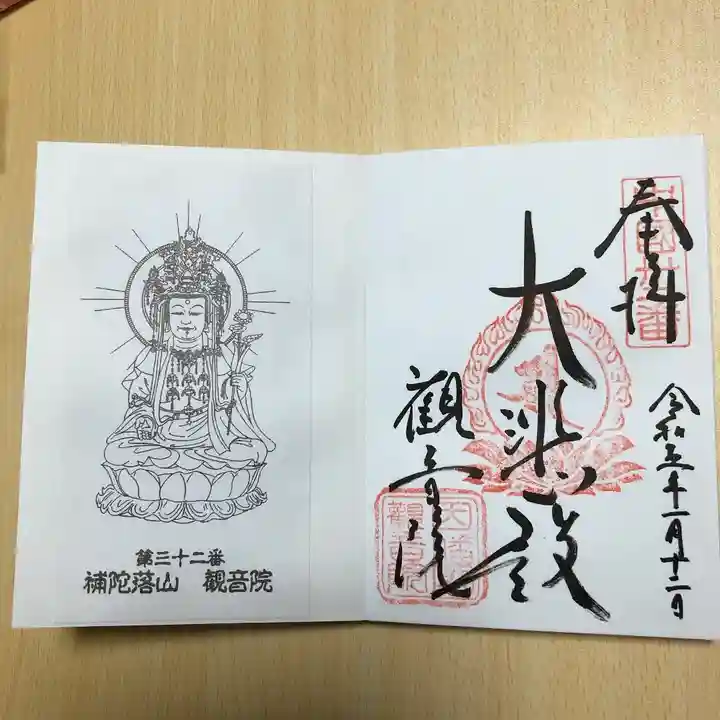 奉拝
大悲殿
觀音院
令和五年十一月十二日
第三十二番
補陀落山 観音院